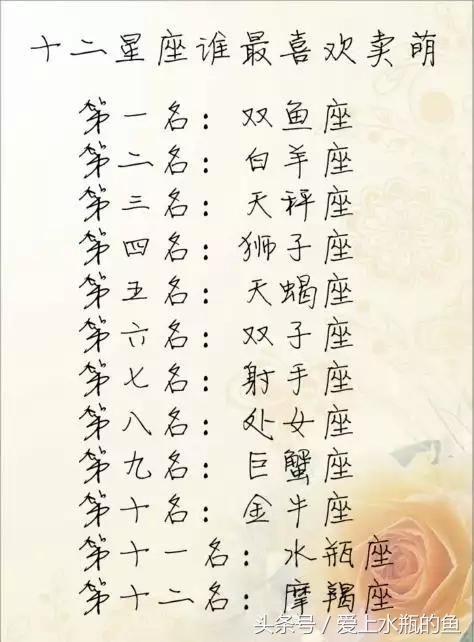 十二星座谁最喜欢卖萌
第一名：双鱼座
第二名：白羊座
第三名：天秤座
第四名：狮子座
第五名：天蝎座
第六名：双子座
第七名：射手座
第八名：处女座
第九名：巨蟹座
第十名：金牛座
第十一名：水瓶座
第十二名：摩羯座
头条号／爱上水瓶的鱼